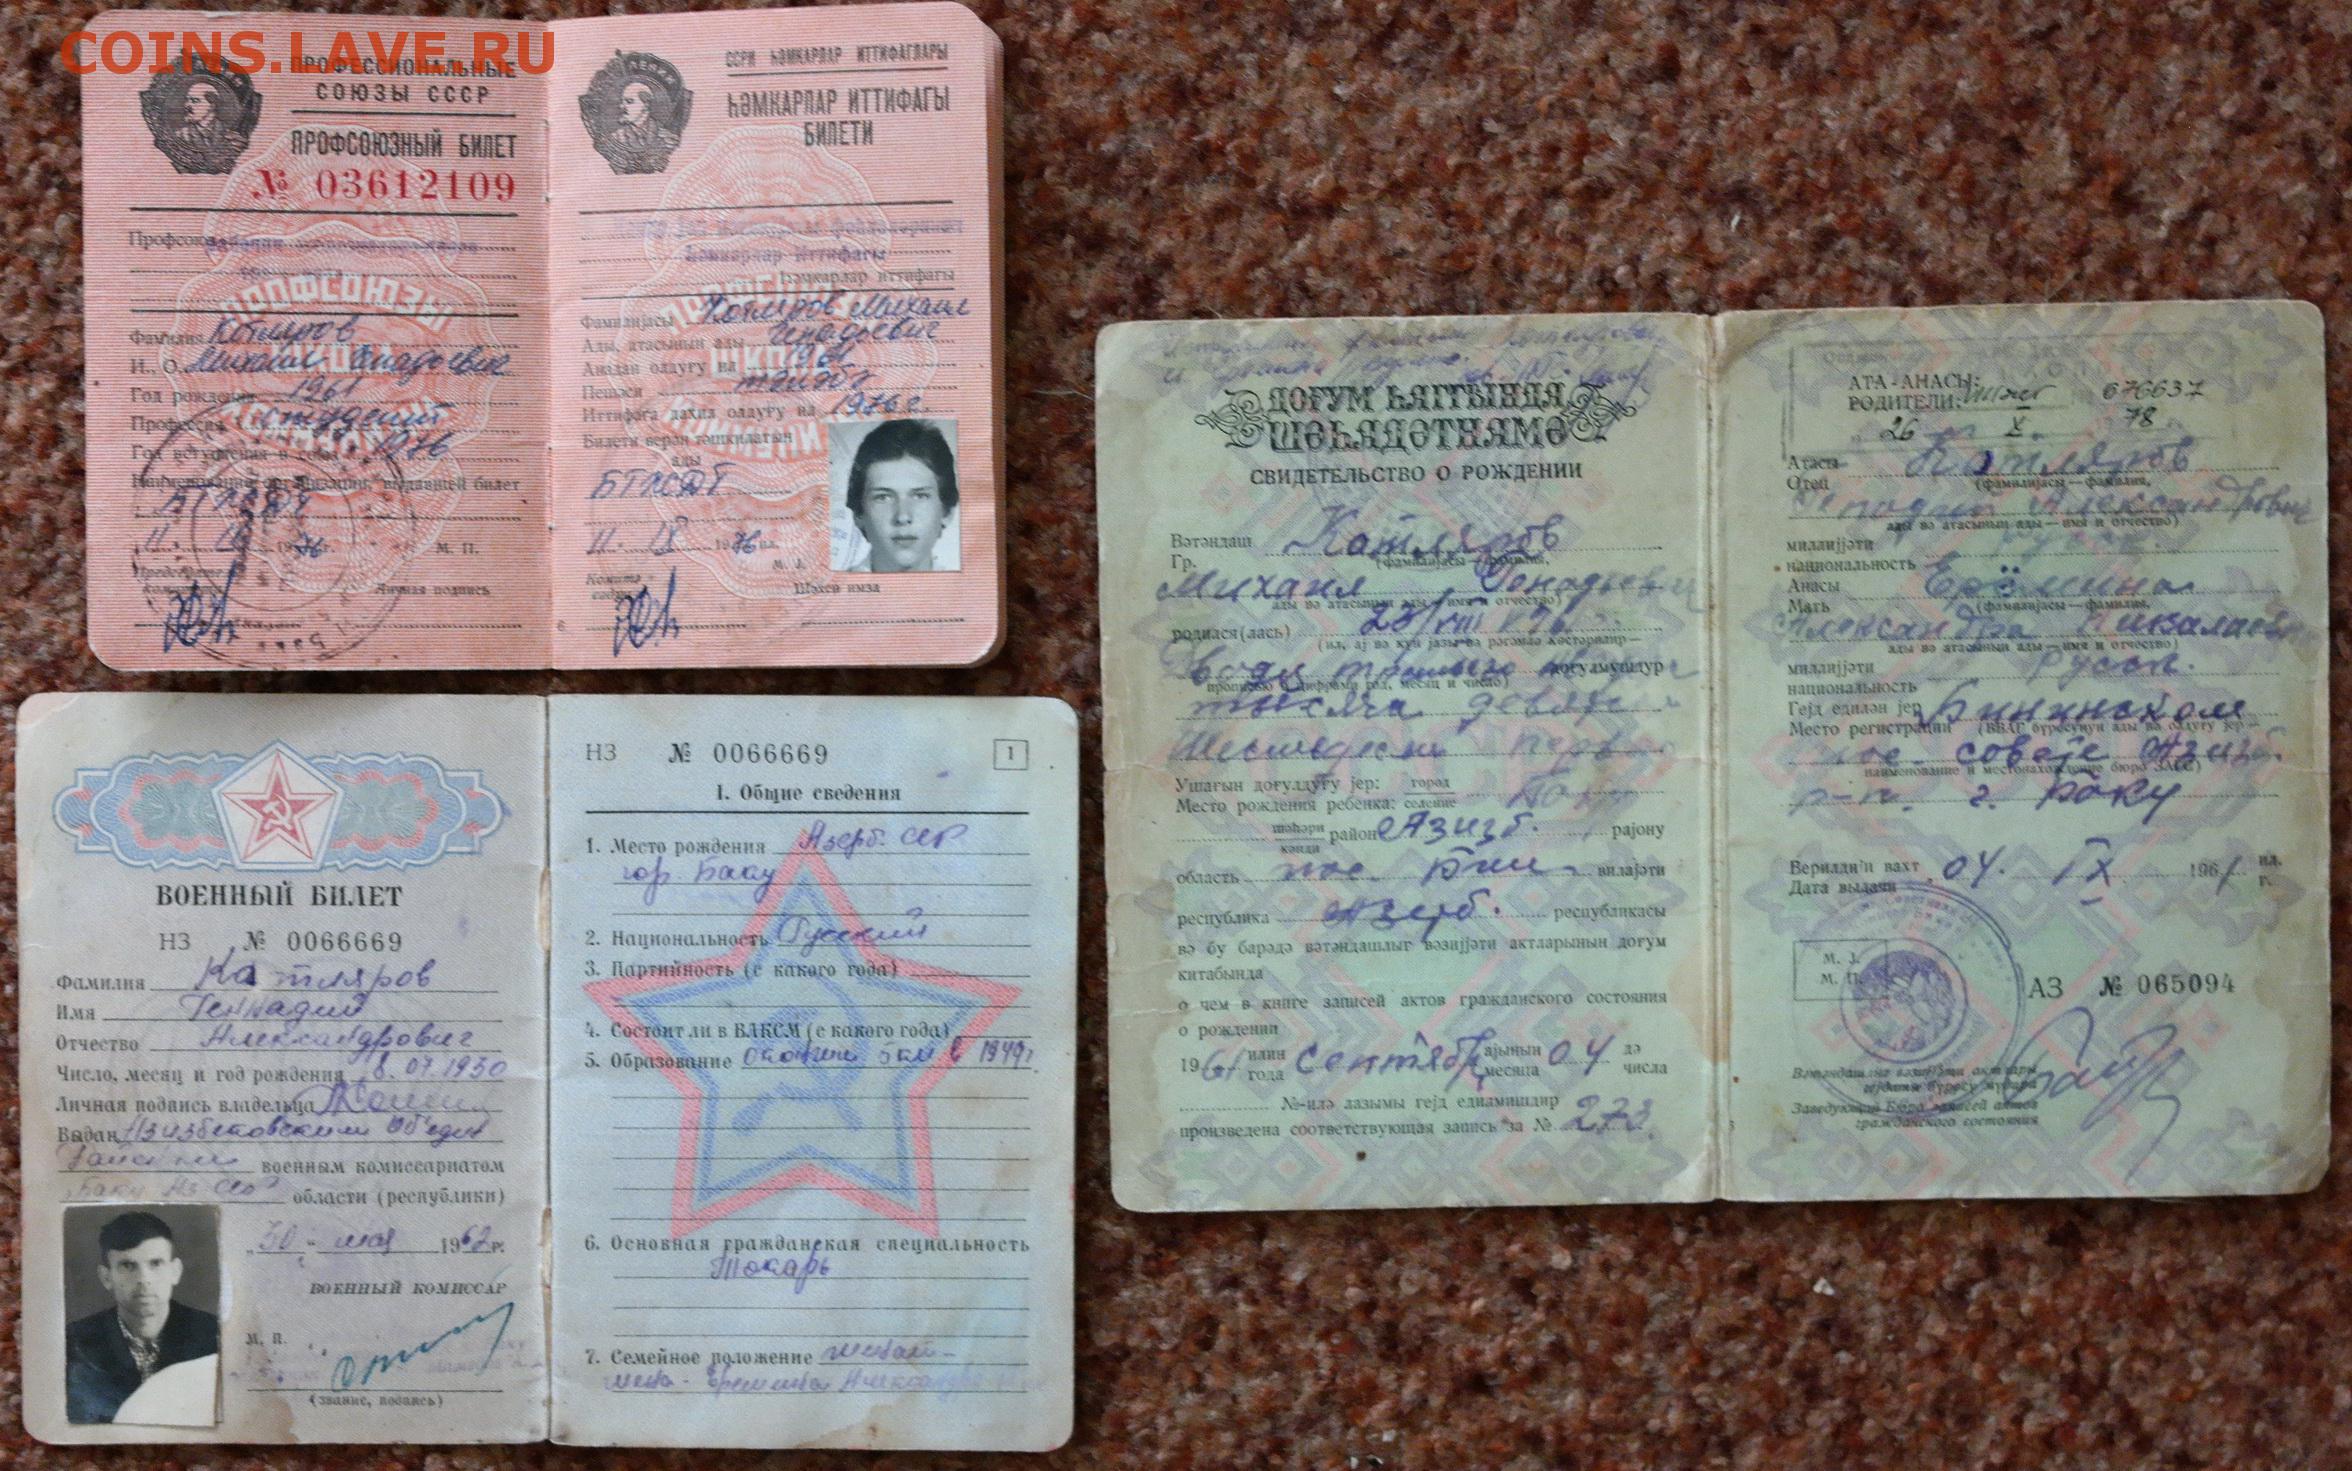 COINS.LAVE.RU
ПРОФЕССИОНАЛЬНЫЕ
СОЮЗЫ СССР
ПРОФСОЮЗНЫЙ БИЛЕТ
№ 03612109
Профсоюз
Фамилия Котляров
И., О. Михаил Генадьевич
Год рождения 1961
Профессия студент
Год вступления в союз 1976
Наименование организации, выдавшей билет
БТКСДТ
11. IX 1976 г. М. П.
Председатель комитета
Личная подпись
ССРИ ҺӘМКАРЛАР ИТТИФАГЛАРЫ
ҺӘМКАРЛАР ИТТИФАГЫ
БИЛЕТИ
Һәмкарлар Иттифагы
Һәмкарлар иттифагы
Фамилијасы Котляров Михаил
Ады, атасынын ады Генадьевич
Анадан олдуғу ил 1961
Пешәси тәләбә
Иттифага дахил олдуғу ил 1976 г.
Билети верән тәшкилатын
ады
БТКСДТ
11. IX 1976 ил. М. Ј.
Комитә сәдри
Шәхси имза
6
ВОЕННЫЙ БИЛЕТ
НЗ № 0066669
Фамилия Катляров
Имя Геннадий
Отчество Александрович
Число, месяц и год рождения 8.07.1930
Личная подпись владельца
Выдан Азизбековским Объедин
военным комиссариатом
Баку Аз ССР области (республики)
„30" мая 1962 г.
ВОЕННЫЙ КОМИССАР
М. П.
(звание, подпись)
НЗ № 0066669 1
I. Общие сведения
1. Место рождения Азерб. ССР
гор. Баку
2. Национальность Русский
3. Партийность (с какого года)
4. Состоит ли в ВЛКСМ (с какого года)
5. Образование окончил 5 кл в 1949 г
6. Основная гражданская специальность
Токарь
7. Семейное положение женат -
жена - Еремина Александра
ДОҒУМ ҺАГГЫНДА
ШӘҺАДӘТНАМӘ
СВИДЕТЕЛЬСТВО О РОЖДЕНИИ
Вәтәндаш Катляров
Гр. (фамилијасы — фамилия,
Михаил Генадьевич
ады вә атасынын ады — имя и отчество)
родился(лась) 23/VIII 1961
(ил, ај вә күн јазы вә рәгәмлә көстәрилир —
Двадц третьего августа доғулмушдур
прописью и цифрами год, месяц и число)
тысяча девять
шестьдесят первого
Ушағын доғулдуғу јер: город
Место рождения ребенка: селение Баку
шәһәри кәнди район Азизб. рајону
область пос. Бин. вилајәти
республика Азерб. республикасы
вә бу барәдә вәтәндашлыг вәзијјәти актларынын доғум
китабында
о чем в книге записей актов гражданского состояния
о рождении
1961 илин года сентябрь ајынын месяца 04 дә числа
№-илә лазымы гејд едилмишдир
произведена соответствующая запись за № 273.
АТА-АНАСЫ:
РОДИТЕЛИ:
676637
26 X 78
Атасы Катляров
Отец (фамилијасы — фамилия,
Генадий Александрович
ады вә атасынын ады — имя и отчество)
миллијјәти
национальность русск.
Анасы Ерёмина
Мать (фамилијасы — фамилия,
Александра Николаевна
ады вә атасынын ады — имя и отчество)
миллијјәти русск.
национальность
Гејд едилән јер Бининском
Место регистрации (ВВАГ бүросунун ады вә олдуғу јер —
пос. совете Азизб.
наименование и местонахождение бюро ЗАГС)
р-н. г. Баку
Верилдији вахт 04. IX 1961 ил.
Дата выдачи г.
М. Ј.
М. П.
АЗ № 065094
Вәтәндашлыг вәзијјәти актлары
гејдәти бүросу мүдири
Заведующий Бюро записей актов
гражданского состояния